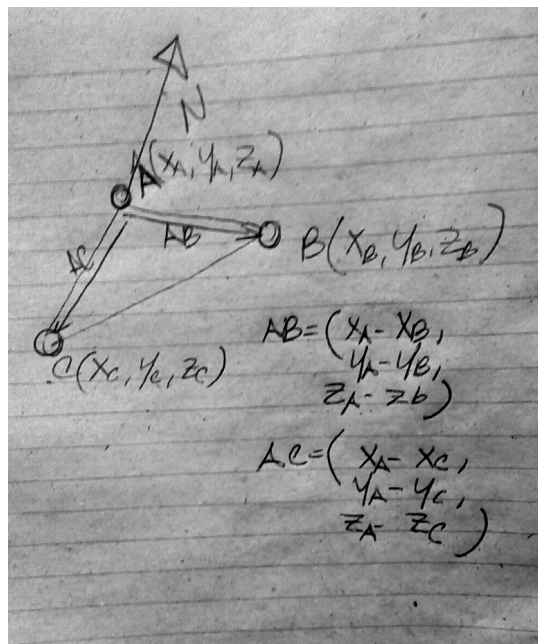 N
A(XA, YA, ZA)
AB
B(XB, YB, ZB)
AC
C(XC, YC, ZC)
AB=(XA-XB,
YA-YB,
ZA-Zb)
AC=(XA-XC,
YA-YC,
ZA-ZC)